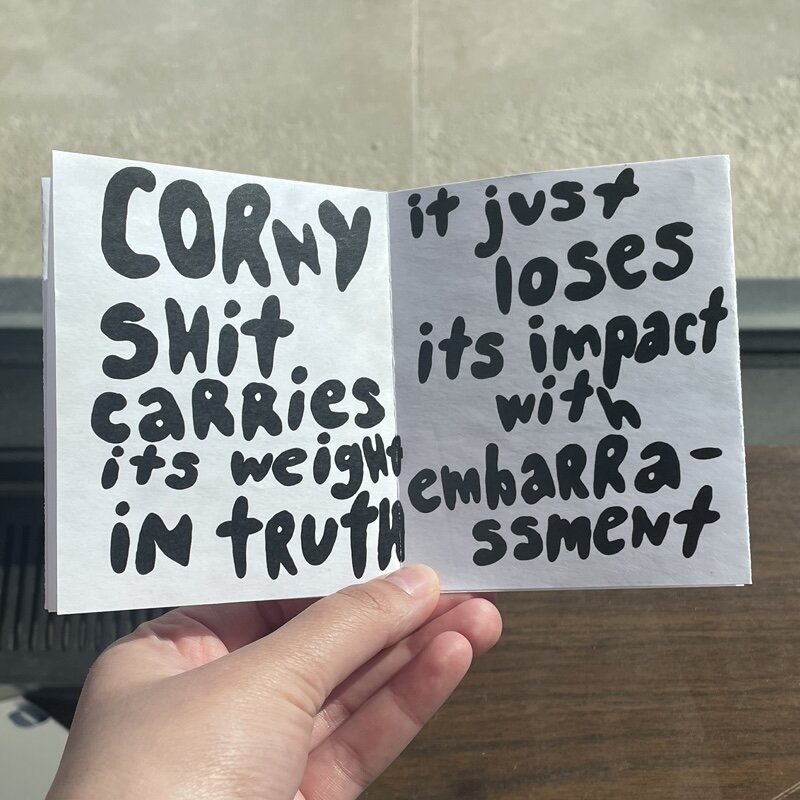 CORNY
SHiT
CARRiES
its weight
iN tRUtH
it just
loses
its impact
with
embaRRa-
ssmeNt